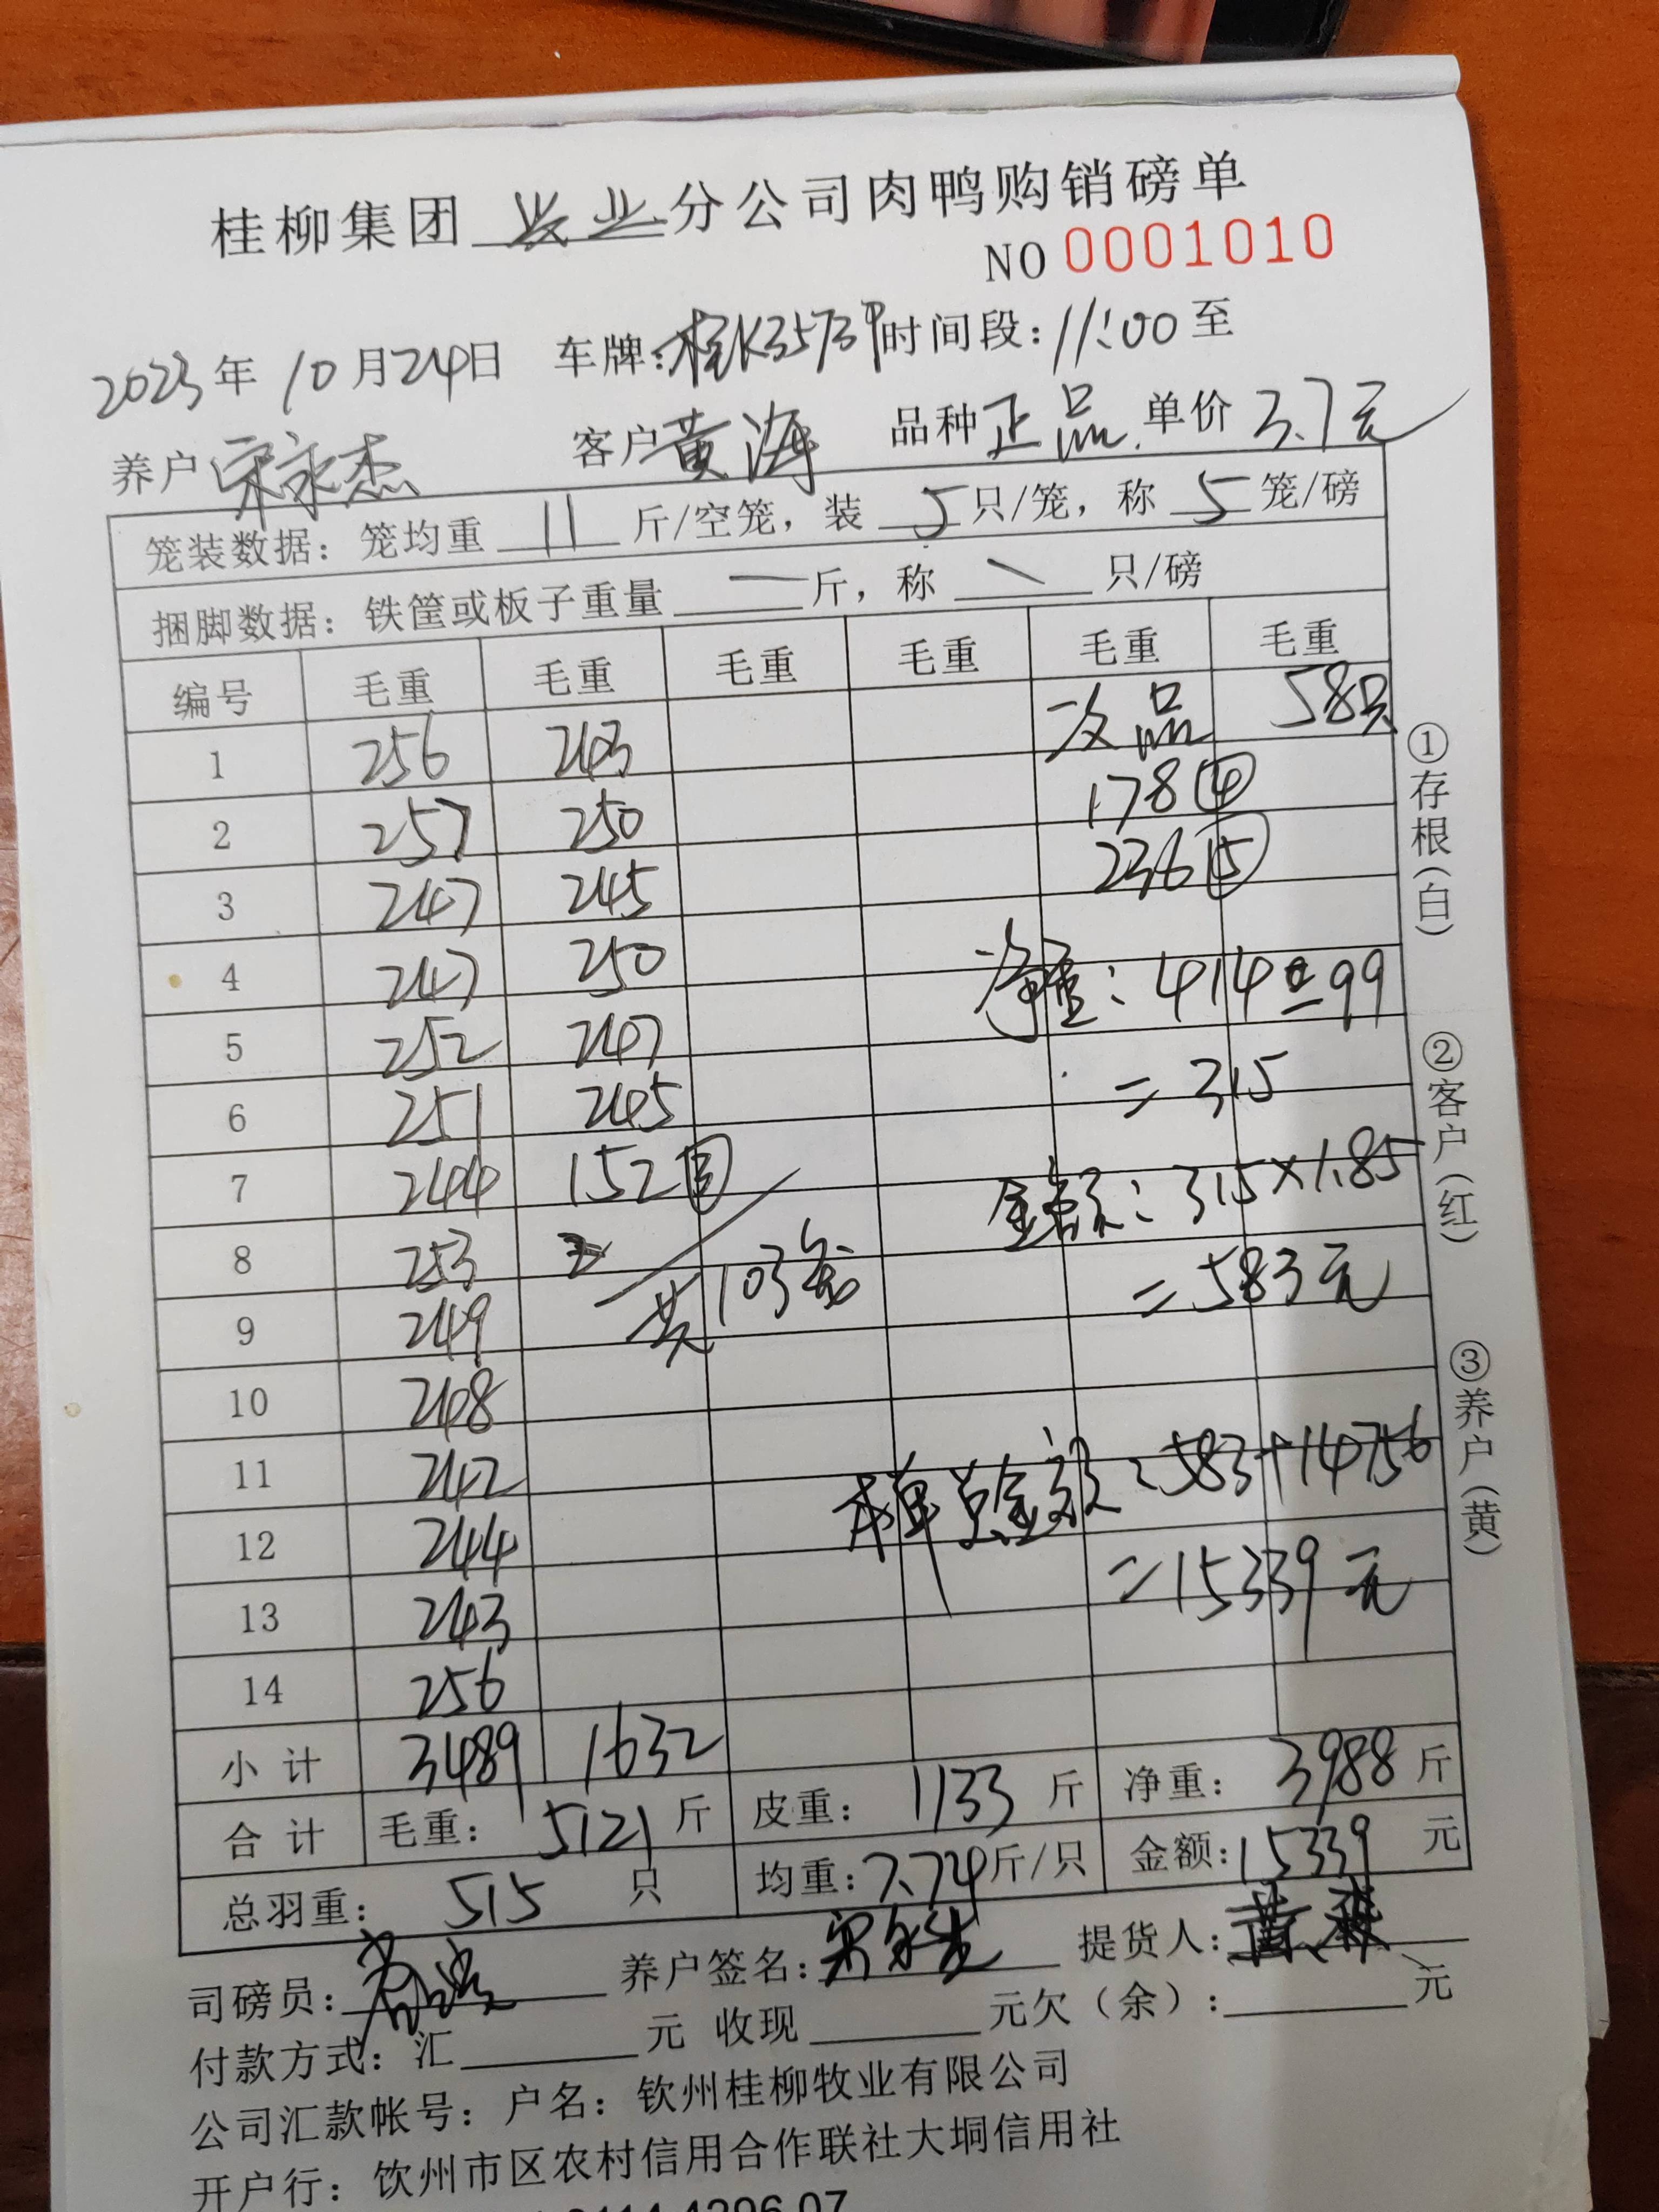 桂柳集团 兴业 分公司肉鸭购销磅单
NO 0001010
2023年 10月24日 车牌:桂K35739 时间段:11:00至
养户 宋永杰 客户 黄海 品种 正品 单价 3.7元
笼装数据:笼均重 11 斤/空笼,装 5 只/笼,称 5 笼/磅
捆脚数据:铁筐或板子重量 — 斤,称 — 只/磅
编号 毛重 毛重 毛重 毛重 毛重 毛重
1 256 243 次品 58只
2 257 250 178④
3 247 245 236⑤
4 247 250 净重:414-99
5 252 247
6 251 245 =315
7 244 152③ 金额:315×1.85
8 253 共103笼 =583元
9 249
10 248
11 242 本单总金额=583+14756
12 244 =15339元
13 243
14 256
小计 3489 1632
合计 毛重:5121斤 皮重:1133斤 净重:3988斤
总羽重:515只 均重:7.74斤/只 金额:15339元
司磅员: 养户签名:宋永杰 提货人:
付款方式:汇 元 收现 元欠(余): 元
公司汇款帐号:户名:钦州桂柳牧业有限公司
开户行:钦州市区农村信用合作联社大垌信用社
①存根(白)
②客户(红)
③养户(黄)